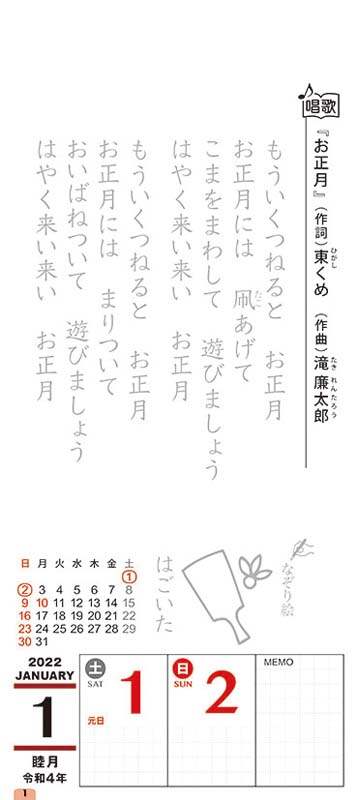 唱歌
『お正月』（作詞）東くめ　（作曲）滝 廉太郎
ひがし
たき れんたろう
もういくつねると　お正月
お正月には　凧あげて
たこ
こまをまわして　遊びましょう
はやく来い来い　お正月
もういくつねると　お正月
お正月には　まりついて
おいばねついて　遊びましょう
はやく来い来い　お正月
なぞり絵
はごいた
日 月 火 水 木 金 土
1
2 3 4 5 6 7 8
9 10 11 12 13 14 15
16 17 18 19 20 21 22
23 24 25 26 27 28 29
30 31
2022
JANUARY
1
睦月
令和4年
土
SAT
1
元日
日
SUN
2
MEMO
1